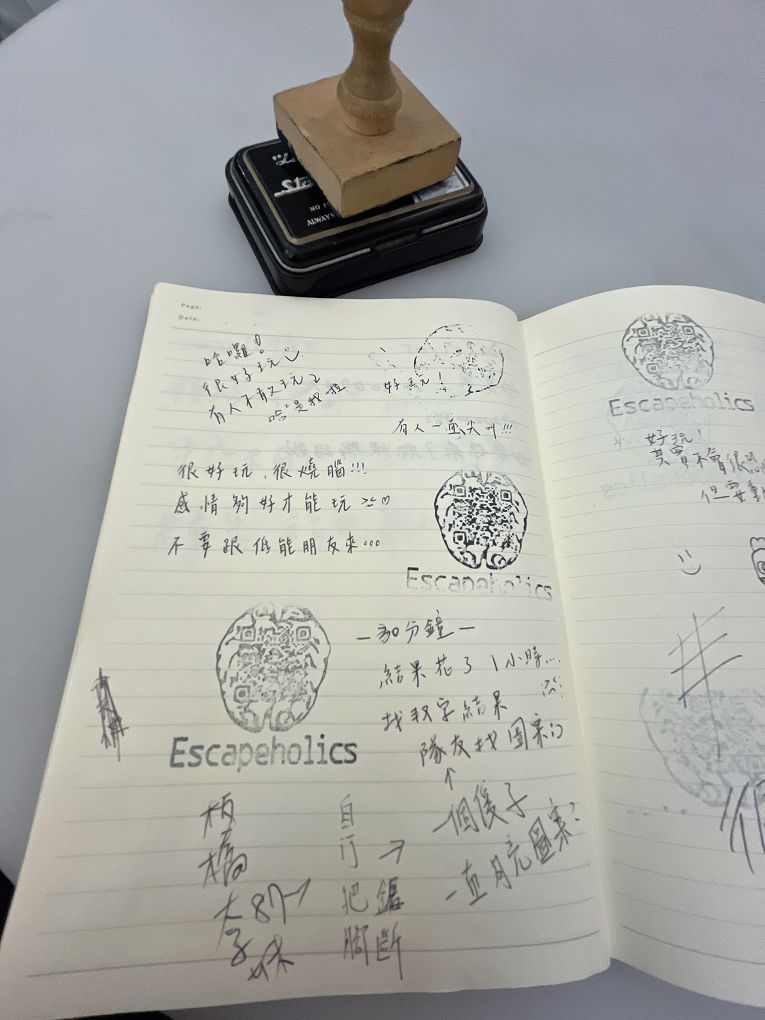 Page:
Date:
哈囉!
很好玩
有人不敢玩
哈是我啦
好玩!
有人一直尖叫!!!
很好玩,很燒腦!!!
感情夠好才能玩
不要跟低能朋友來...
Escapeholics
Escapeholics
—30分鐘—
結果花了1小時...
找數字結果
隊友找圖案的
↑
一個傻子
一直月亮圖案?
板橋
太子
87
妹
自行把
腳鋸斷
Escapeholics
好玩!
其實不會很恐
但要動
NO 1
ALWAYS